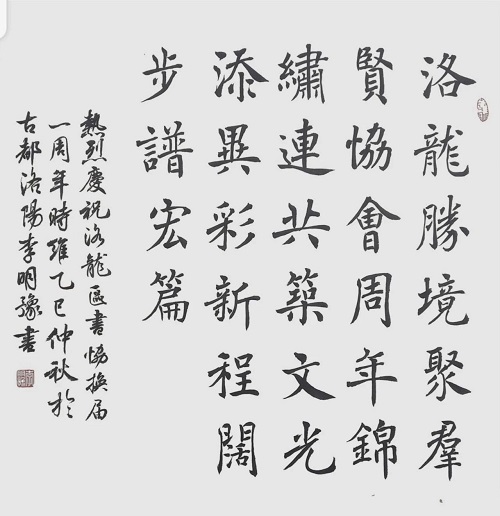 洛龍勝境聚羣
賢協會周年錦
繡連共築文光
添異彩新程闊
步譜宏篇
熱烈慶祝洛龍區書協換届
一周年時維乙巳仲秋於
古都洛陽李明豫書